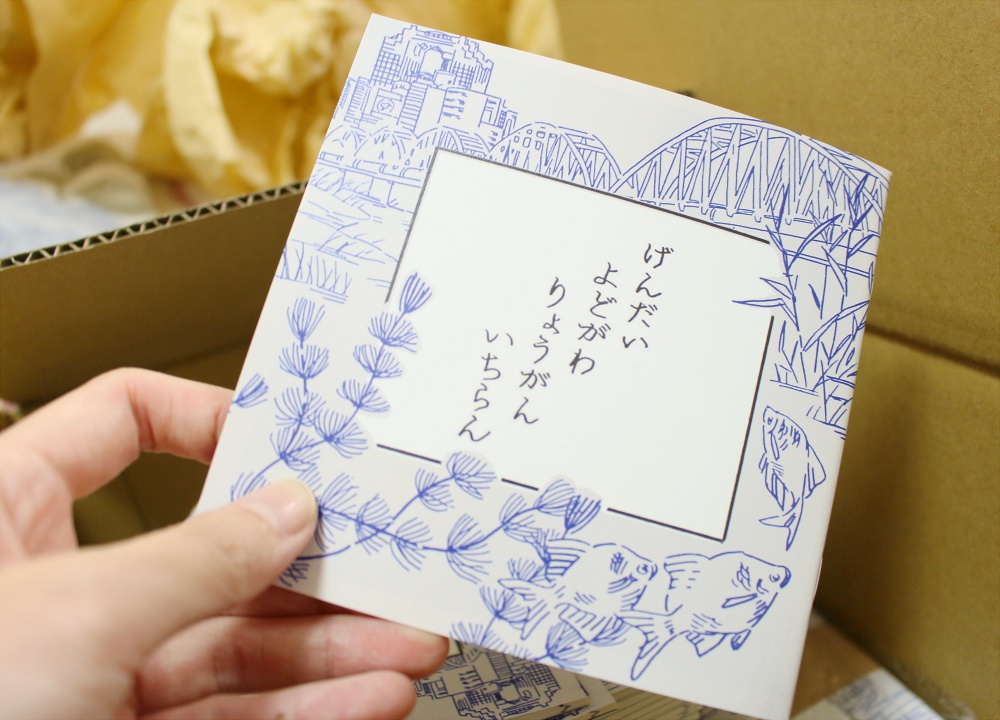 げんだい
よどがわ
りょうがん
いちらん